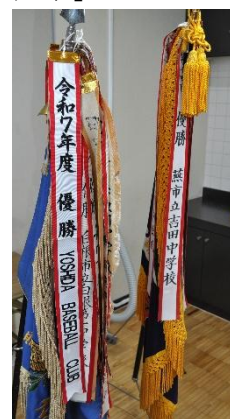 令和7年度 優勝 YOSHIDA BASEBALL CLUB
優勝 燕市立吉田中学校